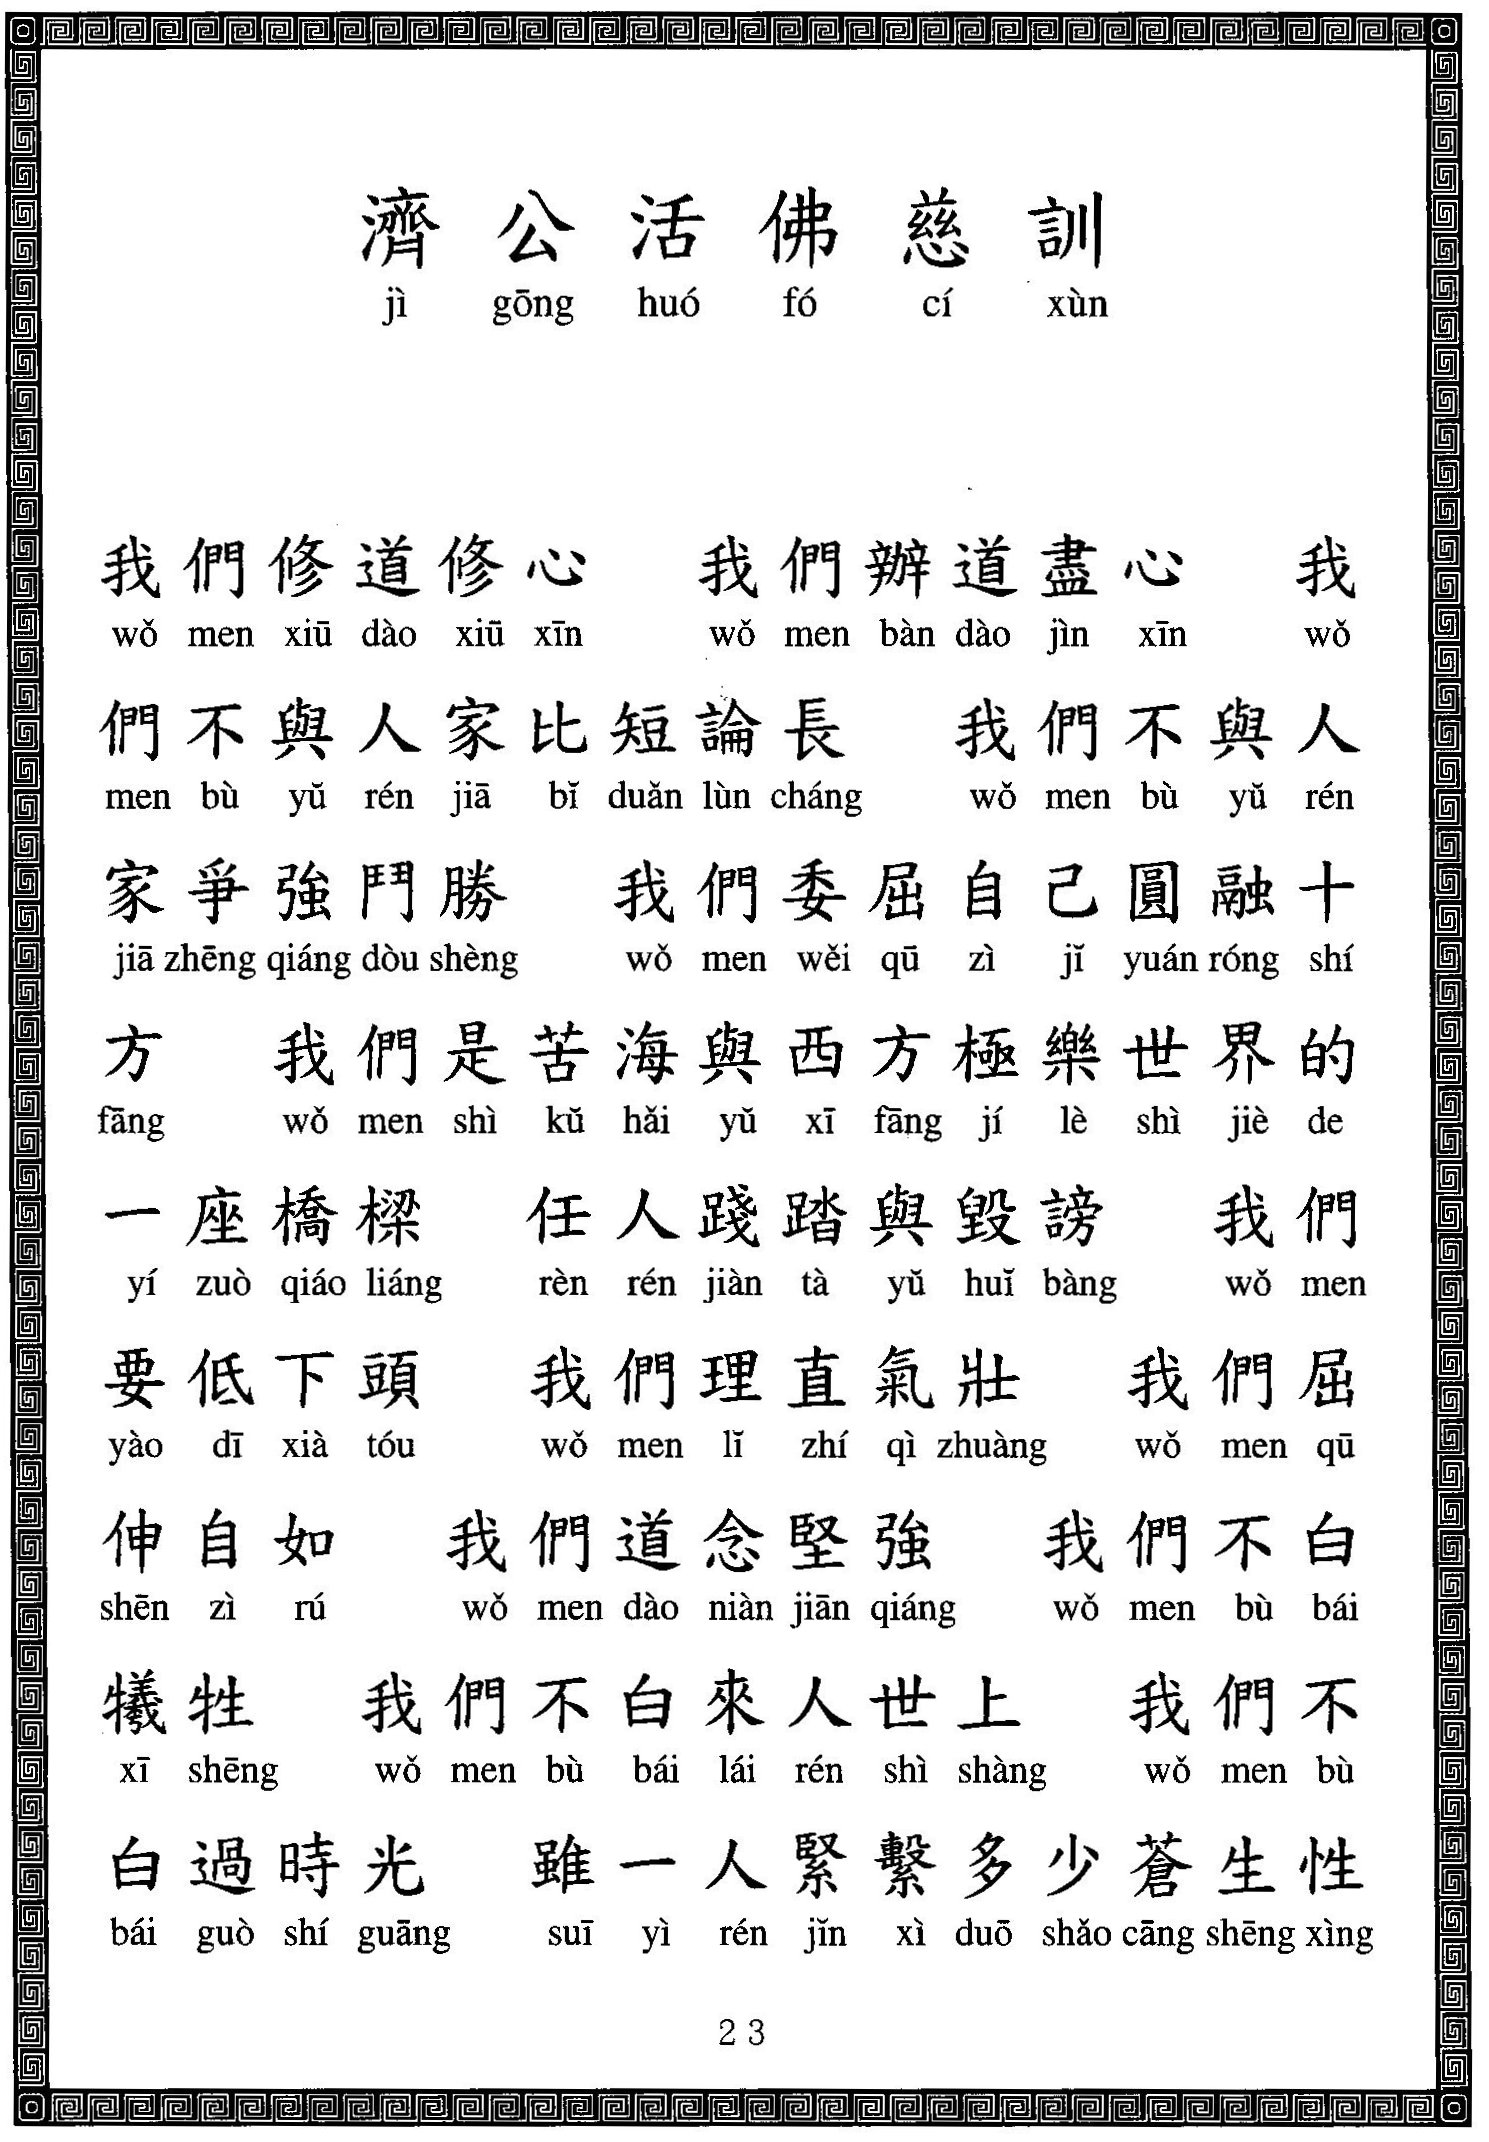 濟公活佛慈訓
jì gōng huó fó cí xùn
我們修道修心 我們辦道盡心 我
wǒ men xiū dào xiū xīn wǒ men bàn dào jìn xīn wǒ
們不與人家比短論長 我們不與人
men bù yǔ rén jiā bǐ duǎn lùn cháng wǒ men bù yǔ rén
家爭強鬥勝 我們委屈自己圓融十
jiā zhēng qiáng dòu shèng wǒ men wěi qū zì jǐ yuán róng shí
方 我們是苦海與西方極樂世界的
fāng wǒ men shì kǔ hǎi yǔ xī fāng jí lè shì jiè de
一座橋樑 任人踐踏與毀謗 我們
yí zuò qiáo liáng rèn rén jiàn tà yǔ huǐ bàng wǒ men
要低下頭 我們理直氣壯 我們屈
yào dī xià tóu wǒ men lǐ zhí qì zhuàng wǒ men qū
伸自如 我們道念堅強 我們不白
shēn zì rú wǒ men dào niàn jiān qiáng wǒ men bù bái
犧牲 我們不白來人世上 我們不
xī shēng wǒ men bù bái lái rén shì shàng wǒ men bù
白過時光 雖一人緊繫多少蒼生性
bái guò shí guāng suī yì rén jǐn xì duō shǎo cāng shēng xìng
23